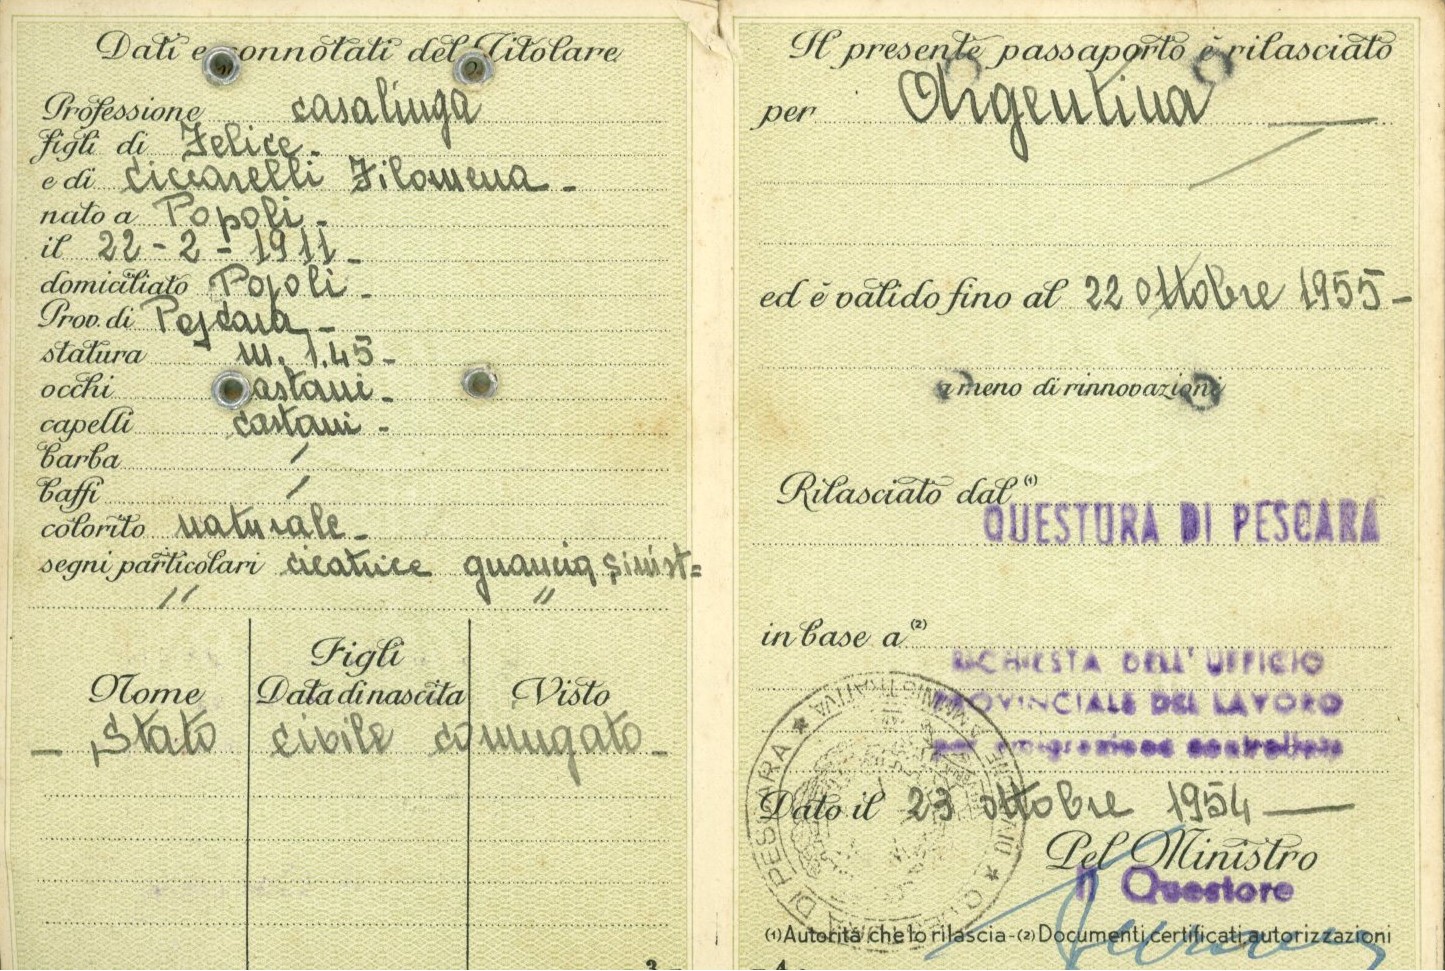 Dati e connotati del Titolare
Professione casalinga
figli di Felice -
e di Ciccarelli Filomena -
nato a Popoli -
il 22 - 2 - 1911 -
domiciliato Popoli -
Prov. di Pescara -
statura m. 1,45 -
occhi castani -
capelli castani -
barba /
baffi /
colorito naturale -
segni particolari cicatrice guancia sinist=
" "
Figli
Nome Data di nascita Visto
- Stato civile coniugato -
3 -
Il presente passaporto è rilasciato
per Argentina —
ed è valido fino al 22 ottobre 1955 -
a meno di rinnovazioni
Rilasciato dal (1)
QUESTURA DI PESCARA
in base a (2)
RICHIESTA DELL'UFFICIO
PROVINCIALE DEL LAVORO
per emigrazione controllata
Dato il 23 ottobre 1954 —
Pel Ministro
Il Questore
(1) Autorità che lo rilascia - (2) Documenti, certificati, autorizzazioni
- 4 -